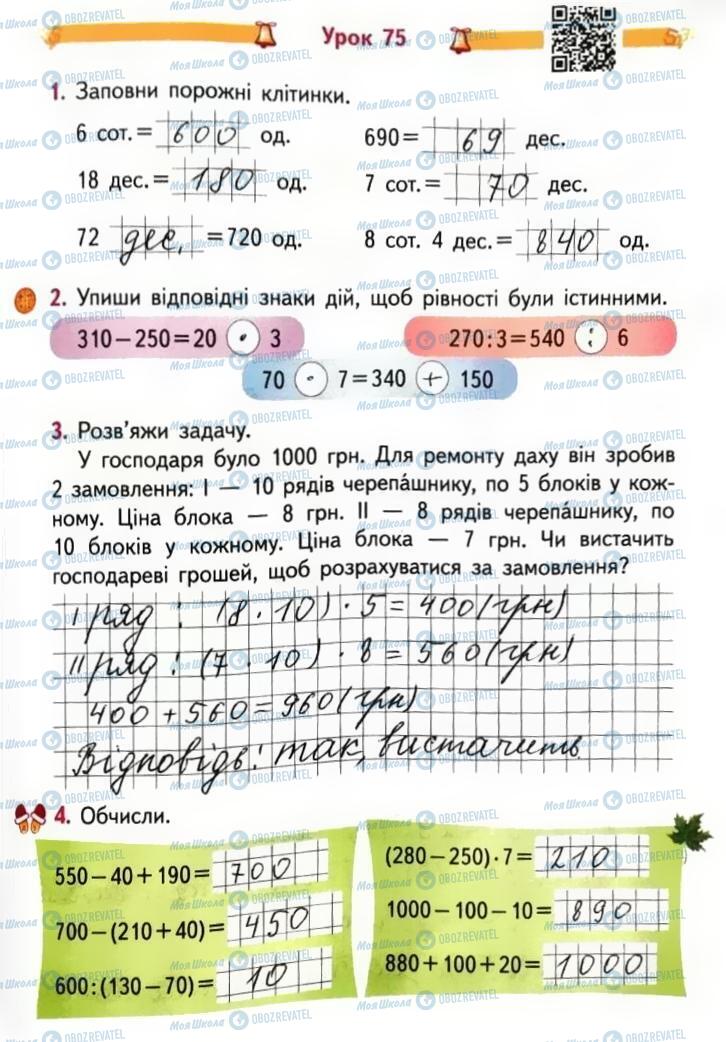 Урок 75
1. Заповни порожні клітинки.
6 сот. = 600 од. 690 = 69 дес.
18 дес. = 180 од. 7 сот. = 70 дес.
72 дес. = 720 од. 8 сот. 4 дес. = 840 од.
2. Упиши відповідні знаки дій, щоб рівності були істинними.
310 – 250 = 20 · 3 270 : 3 = 540 : 6
70 · 7 = 340 + 150
3. Розв’яжи задачу.
У господаря було 1000 грн. Для ремонту даху він зробив
2 замовлення: І — 10 рядів черепа́шнику, по 5 блоків у кож-
ному. Ціна блока — 8 грн. ІІ — 8 рядів черепа́шнику, по
10 блоків у кожному. Ціна блока — 7 грн. Чи вистачить
господареві грошей, щоб розрахуватися за замовлення?
І ряд : (8 · 10) · 5 = 400 (грн)
ІІ ряд : (7 · 10) · 8 = 560 (грн)
400 + 560 = 960 (грн)
Відповідь: так, вистачить.
4. Обчисли.
550 – 40 + 190 = 700 (280 – 250) · 7 = 210
700 – (210 + 40) = 450 1000 – 100 – 10 = 890
600 : (130 – 70) = 10 880 + 100 + 20 = 1000
МояШкола OBOZREVATEL